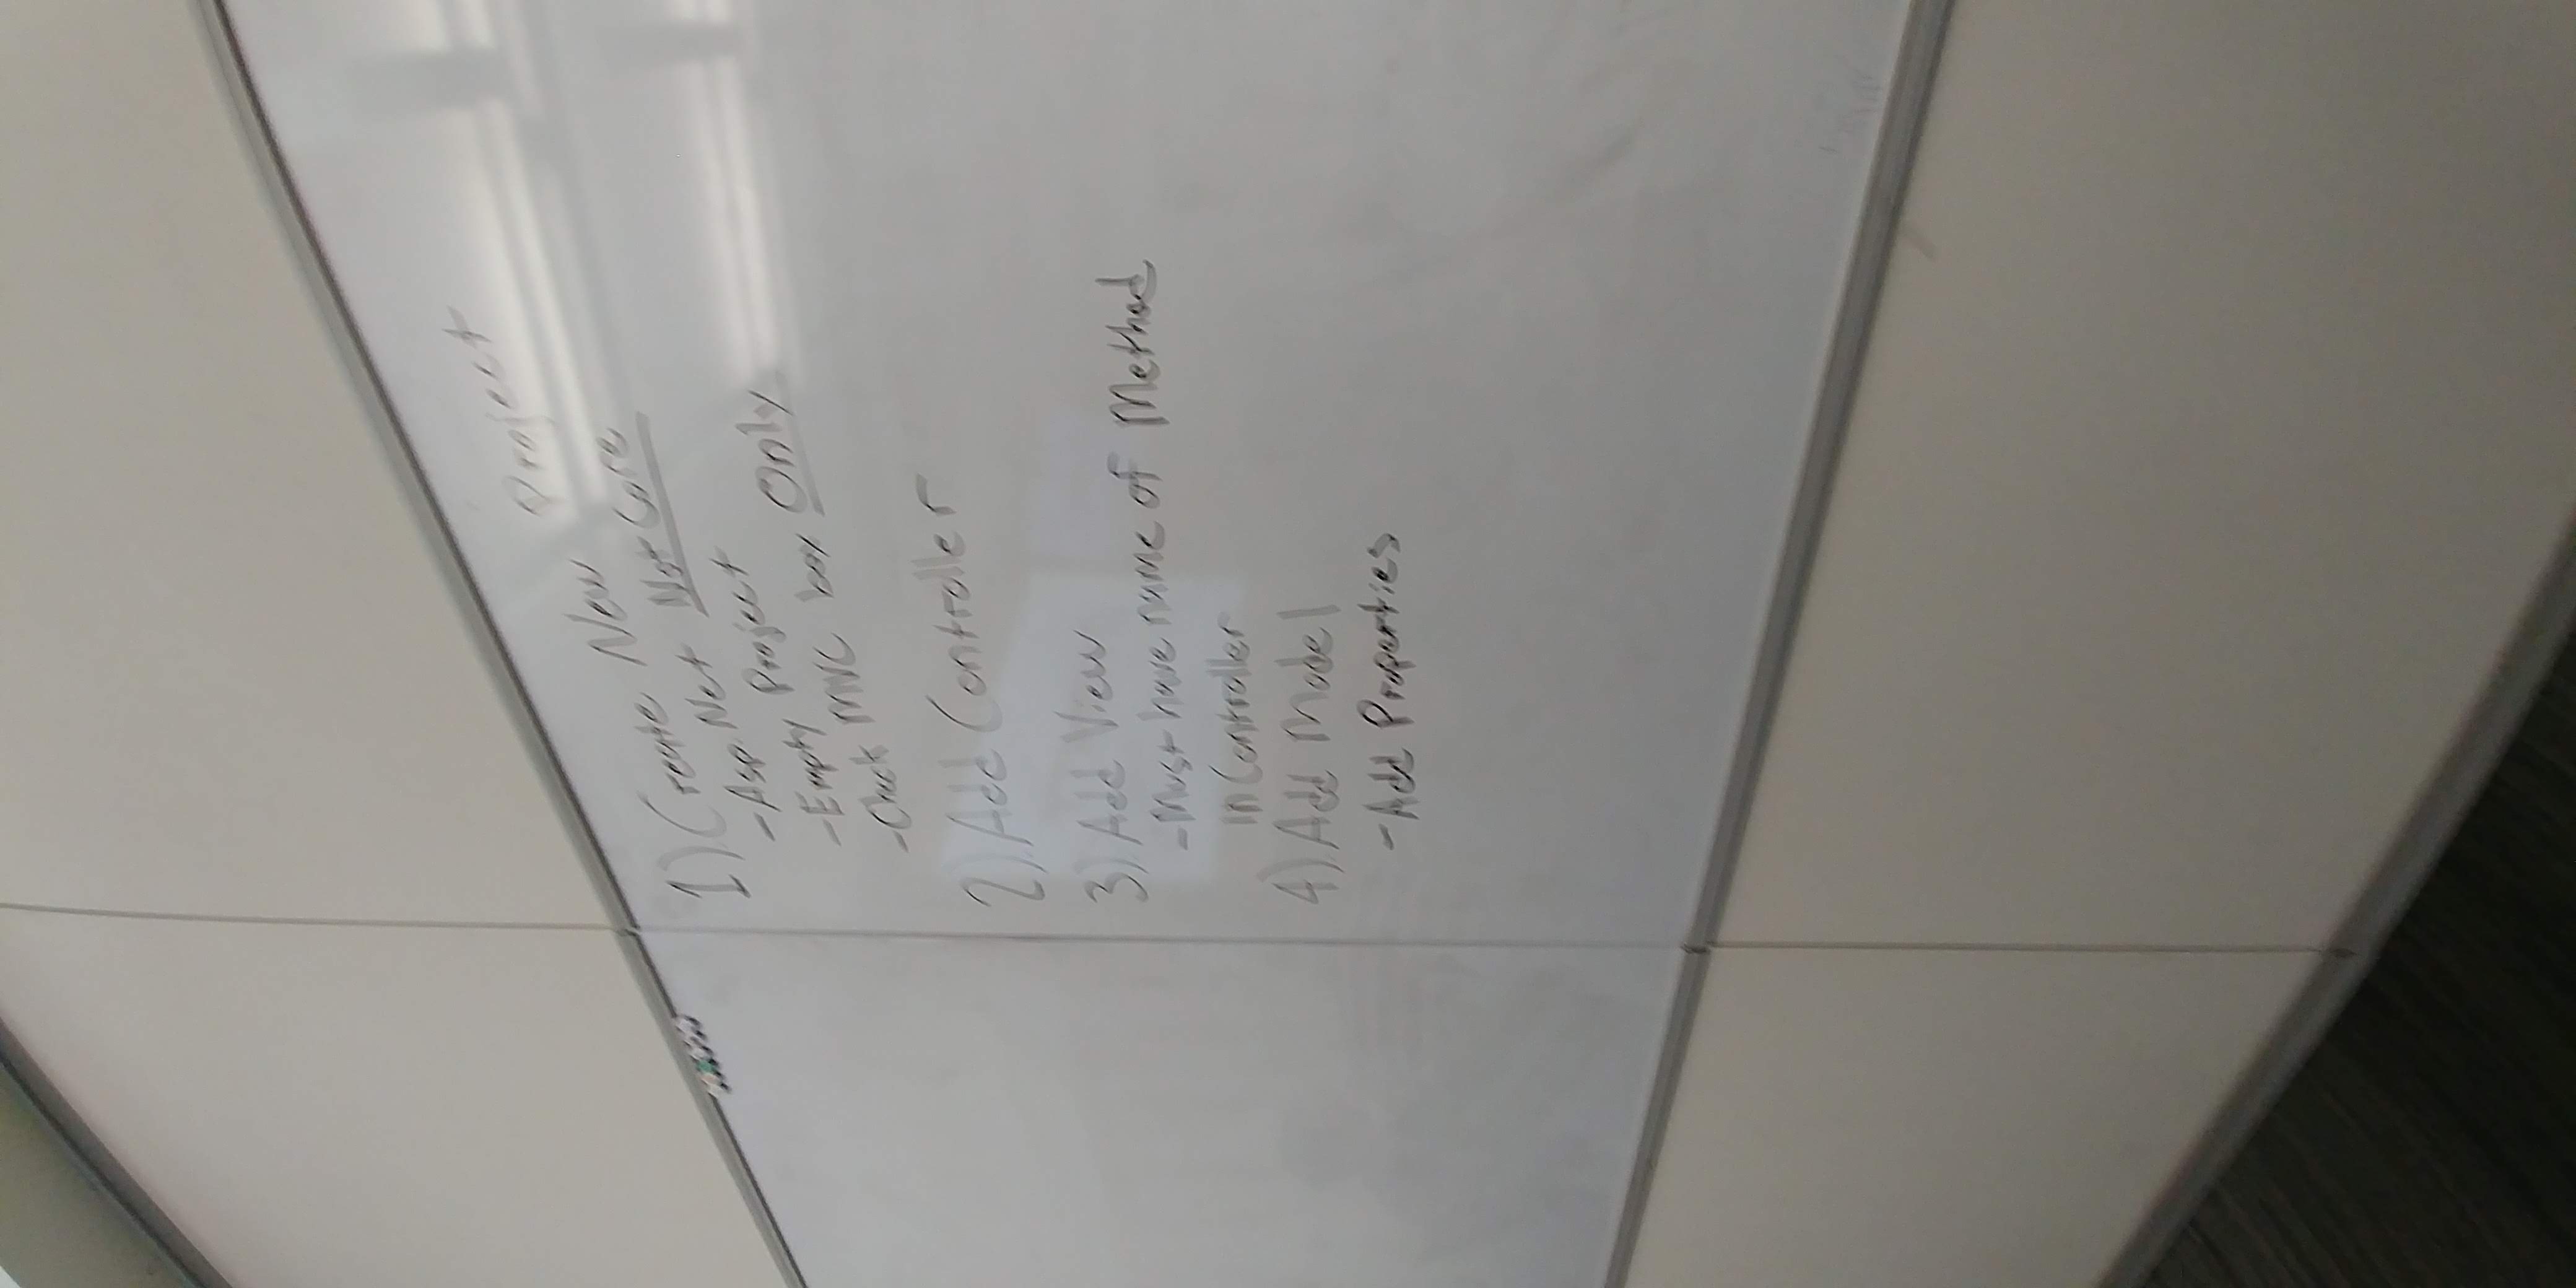 1) Create New Project
-Asp.Net Not Core
-Empty Project
-Check MVC box Only
2). Add Controller
3) Add View
-Must have name of Method
in Controller
4) Add Model
-Add Properties